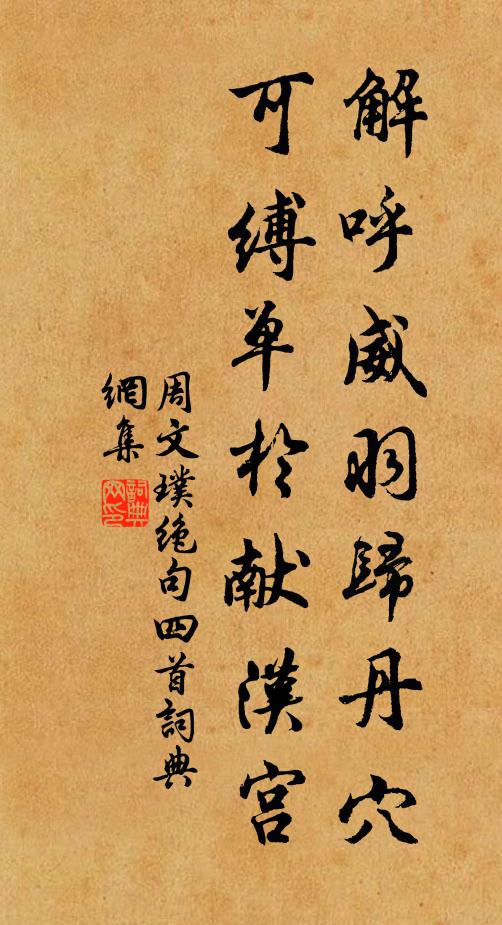 解呼威羽歸丹穴
可縛单於献漢宫
周文璞絶句四首詞典
網集
詞典
网印